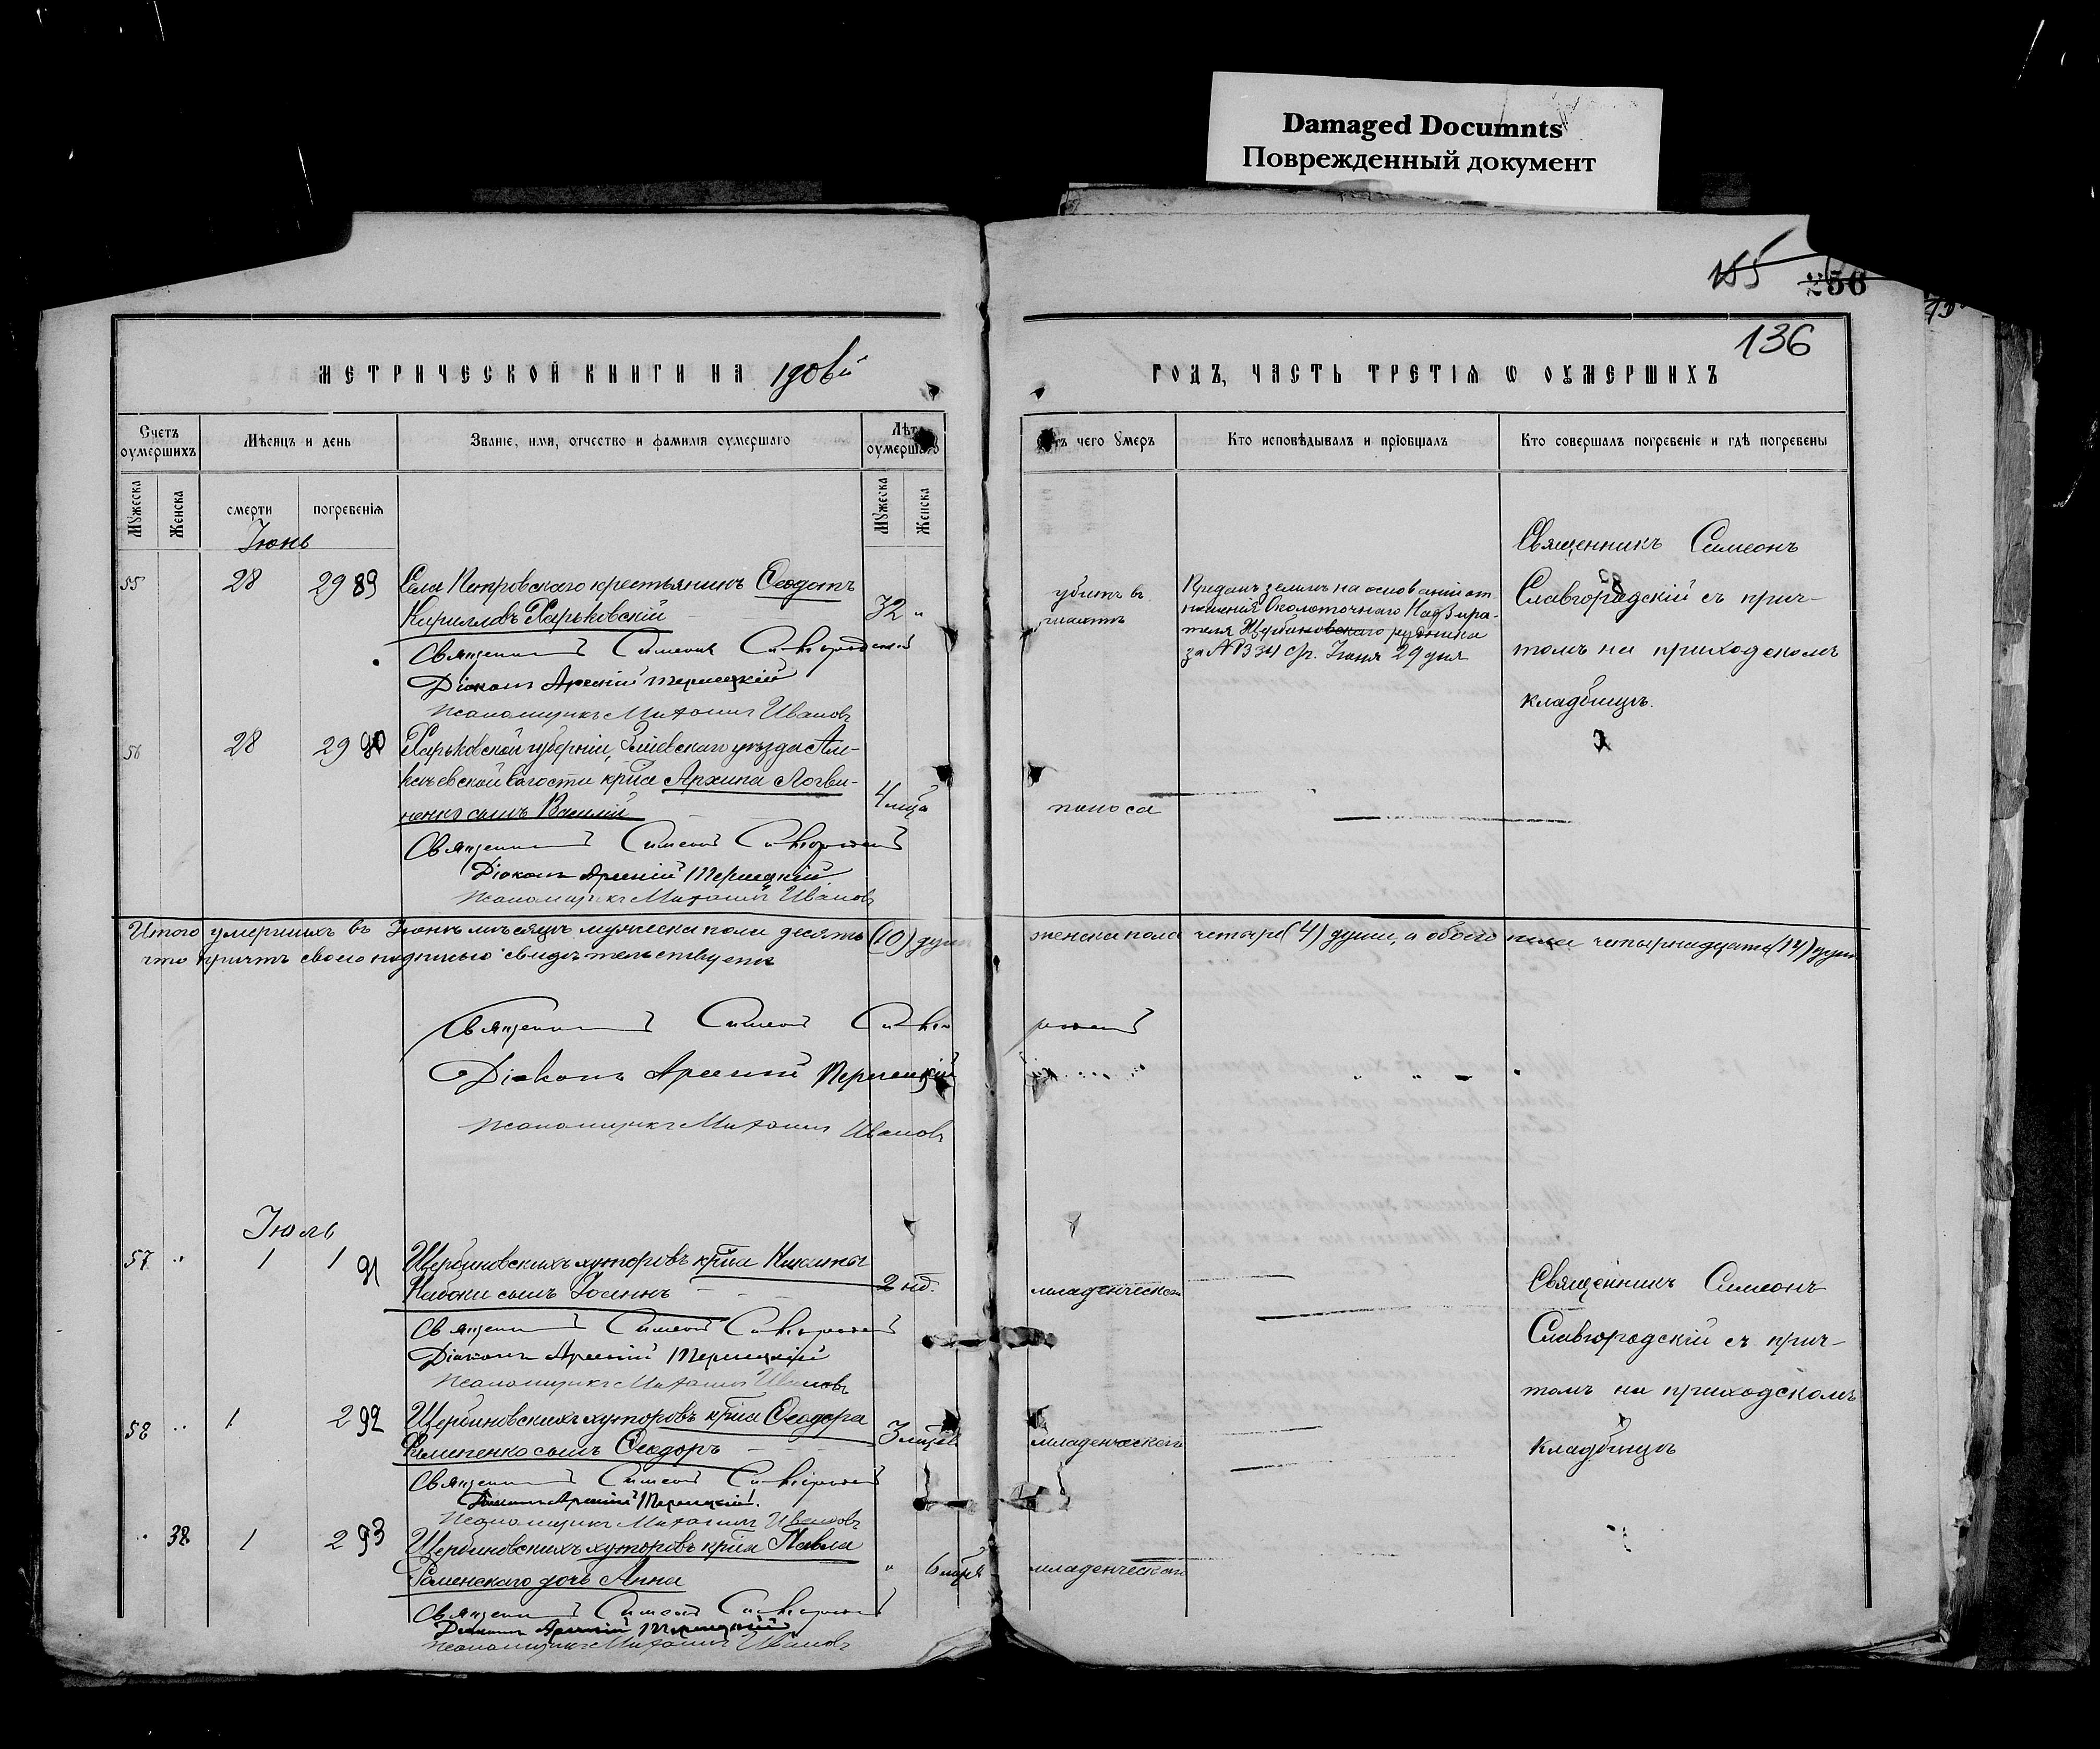 Damaged Documnts
Поврежденный документ
155
256
136
МЕТРИЧЕСКОЙ КНИГИ НА 1906й
ГОДЪ, ЧАСТЬ ТРЕТІЯ Ѡ ОУМЕРШИХЪ
Счетъ оумершихъ
Мѣсяцъ и день
Званіе, имя, отчество и фамилія оумершаго
Лѣта оумершаго
Отъ чего умеръ
Кто исповѣдывалъ и пріобщалъ
Кто совершалъ погребеніе и гдѣ погребены
Мужеска
Женска
смерти
погребенія
Мужеска
Женска
Іюнь
Священникъ Симеонъ
55 28 29 89 Села Петровскаго крестьянинъ Ѳеодотъ
Кирилловъ Харьковскій 32 „
убитъ въ
шахтѣ
Преданъ землѣ на основаніи от
ношенія Околоточнаго Надзира-
теля Щербиновскаго рудника
за № 334 с/г. Іюня 29 дня
Славгородскій съ прич-
томъ на приходскомъ
кладбищѣ.
Священникъ Симеонъ Славгородскій
Діаконъ Арсеній
Псаломщикъ Митрофанъ Ивановъ
56 28 29 90 Харьковской губерніи, Зміевскаго уѣзда Але-
ксѣевской волости кр-на Архипа Логви-
ненко сынъ Василій 4 мца
поноса
Священникъ Симеонъ Славгородскій
Діаконъ Арсеній
Псаломщикъ Ивановъ
Итого умершихъ въ Іюнѣ мѣсяцѣ мужеска пола десять (10) душъ женска пола четыре (4) души, а обоего пола четырнадцать (14) душъ
что причтъ своею подписью свидѣтельствуетъ
Священникъ Симеонъ Славгородскій
Діаконъ Арсеній
Псаломщикъ Ивановъ
Іюль
57 „ 1 1 91 Щербиновскихъ хуторовъ кр-на Никиты
Набоки сынъ Іоаннъ 2 нд.
младенческой
Священникъ Симеонъ
Славгородскій съ прич-
томъ на приходскомъ
кладбищѣ
Священникъ Симеонъ Славгородскій
Діаконъ Арсеній
Псаломщикъ Ивановъ
58 „ 1 2 92 Щербиновскихъ хуторовъ кр-на Ѳеодора
сынъ Ѳеодоръ 3 мцевъ
младенческой
Священникъ Симеонъ Славгородскій
Діаконъ Арсеній
Псаломщикъ Ивановъ
„ 38 1 2 93 Щербиновскихъ хуторовъ кр-на Павла
Роменскаго дочь Анна „ 6 мцевъ
младенческой
Священникъ Симеонъ Славгородскій
Діаконъ Арсеній
Псаломщикъ Ивановъ